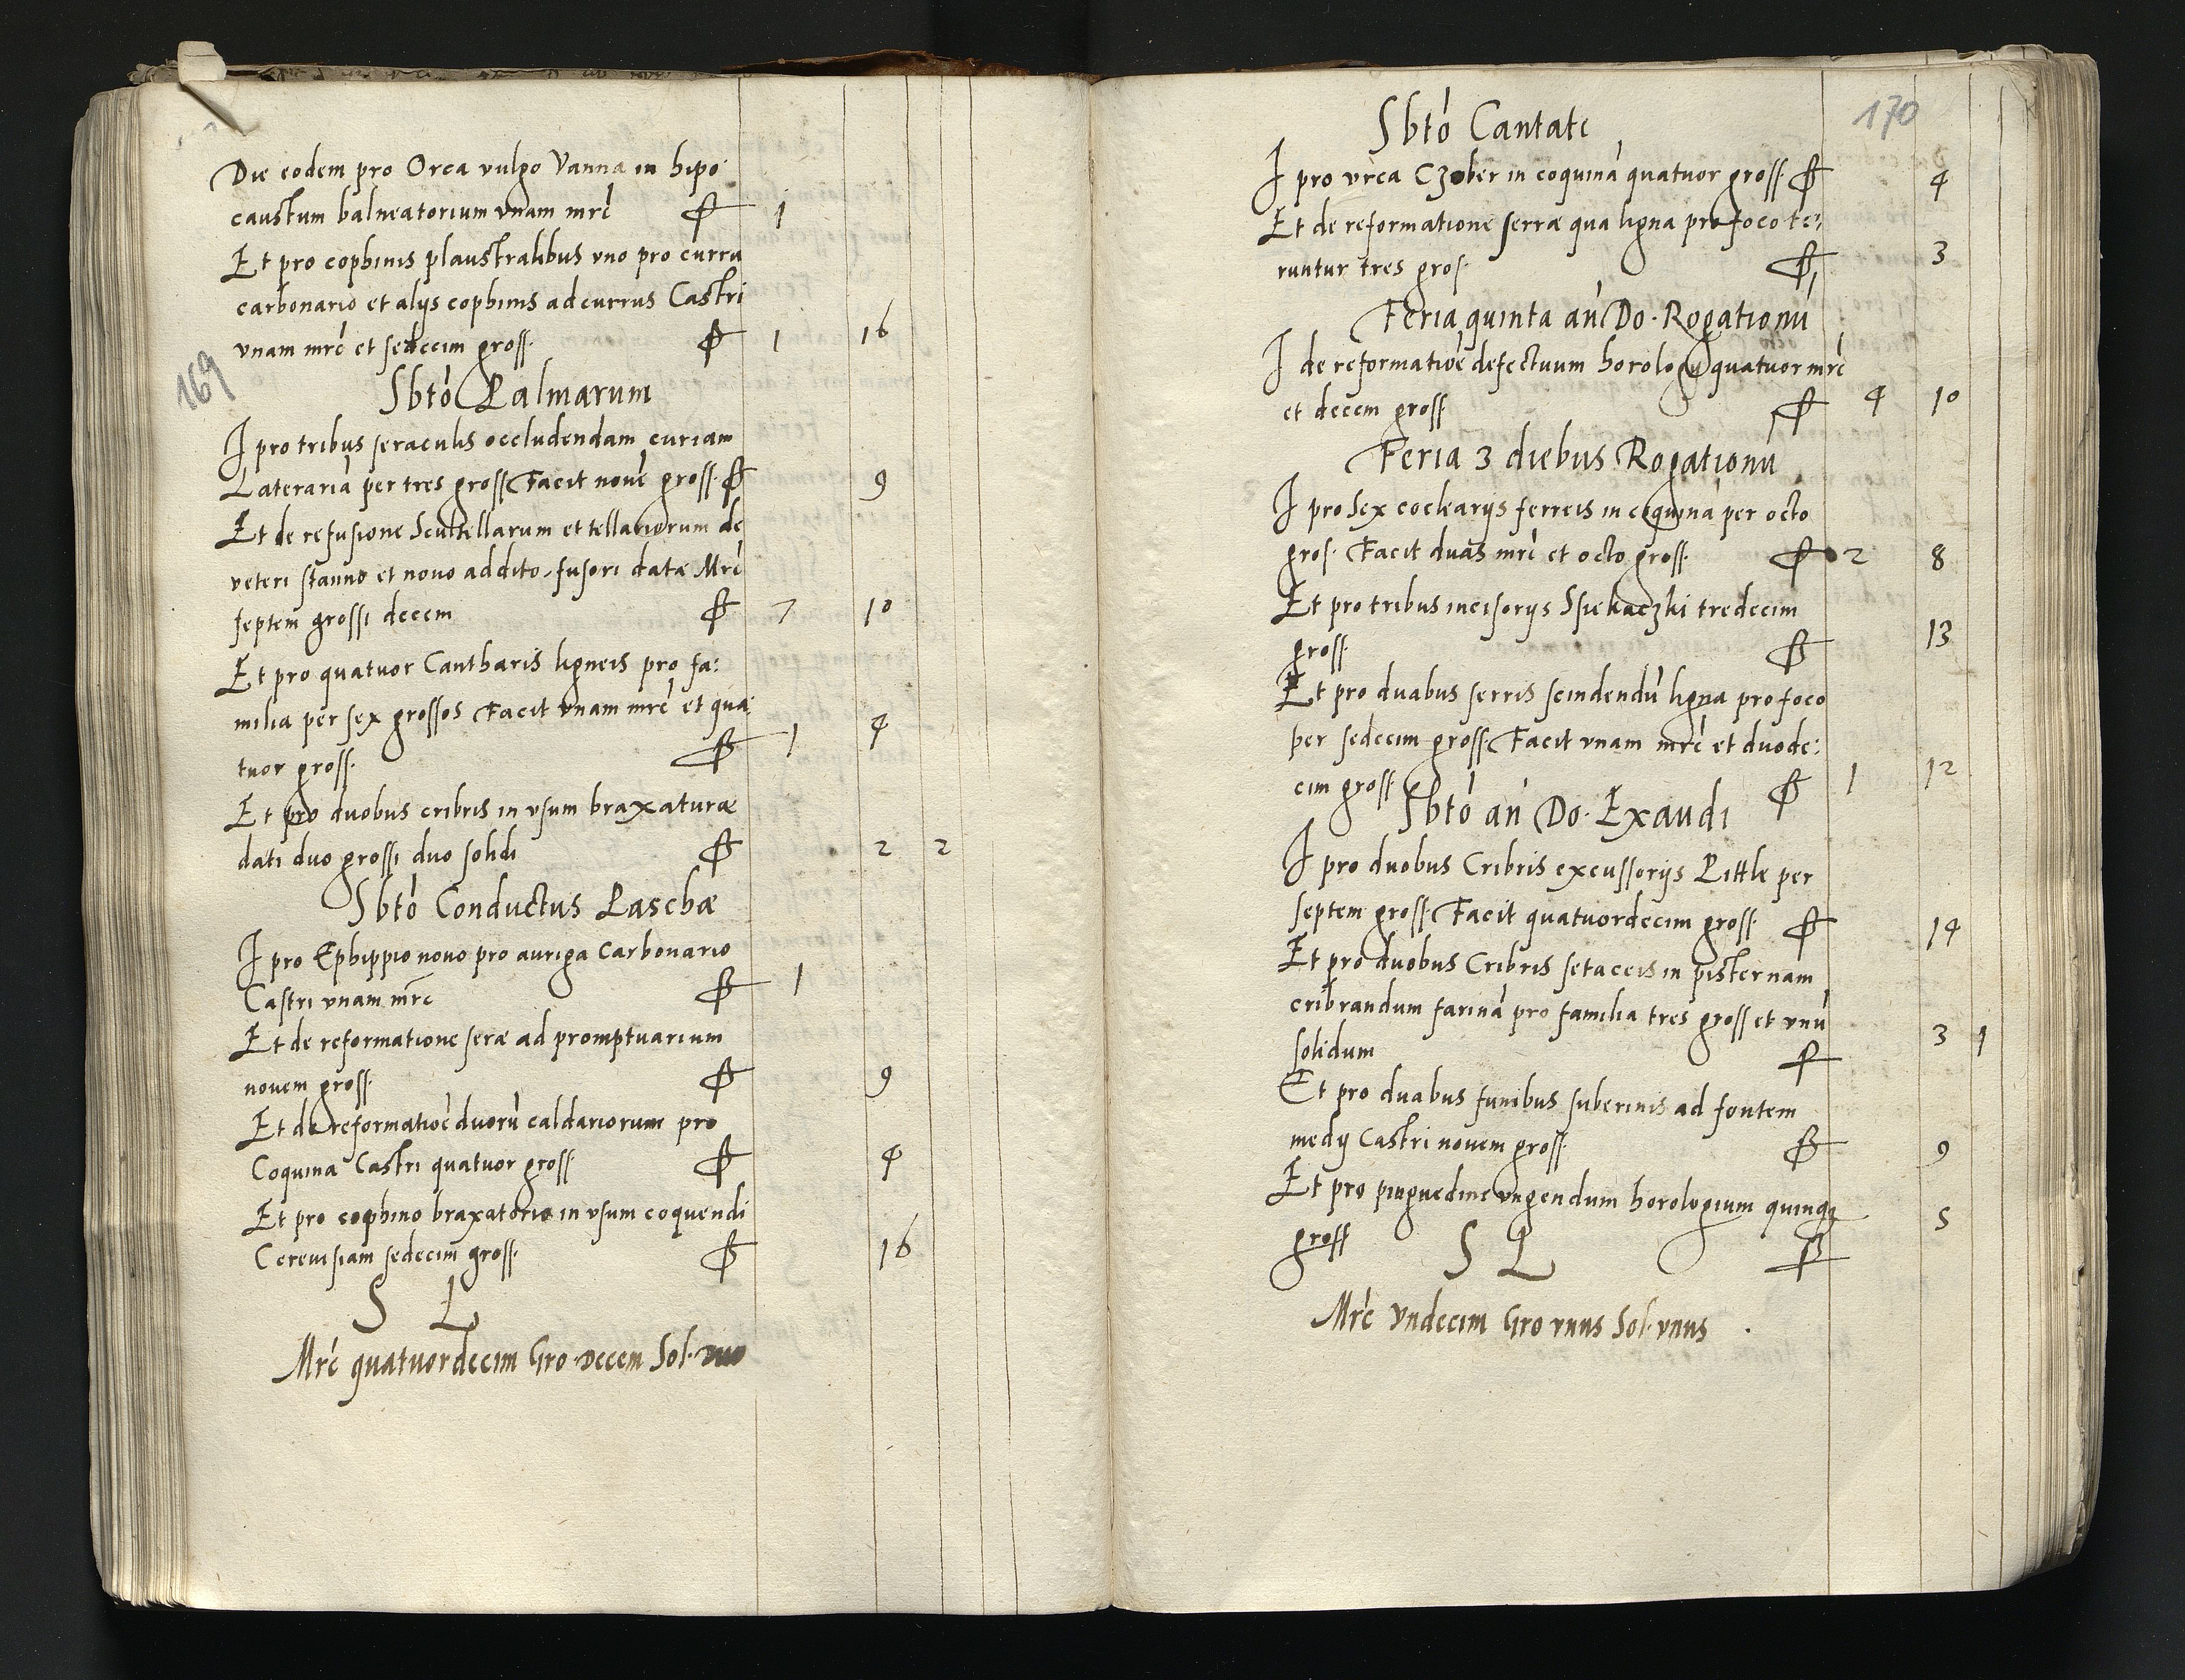 Die eodem pro Orca vulgo Vanna in hipo
caustum balneatorium vnam mrć 1
Et pro cophinis plaustralibus vno pro curru
carbonario et alijs cophinis ad currus Castri
vnam mrć et sedecim gross. 1 16
169
Sbtó Palmarum
I pro tribus seraculis occludendam curiam
Laterariá per tres gross Facit nové gross. 9
Et de refusione Scutellarum et tellariorum de
veteri stanno et nouo addito, fusori datæ Mrć
septem grossi decem 7 10
Et pro quatuor Cantharis ligneis pro fa:
milia per sex grossos Facit vnam mrć et qua:
tuor gross. 1 4
Et pro duobus cribris in vsum braxaturæ
dati duo grossi duo solidi 2 2
Sbtó Conductus Paschæ
I pro Ephippio nouo pro auriga Carbonario
Castri vnam mrć 1
Et de reformatione seræ ad promptuarium
nouem gross. 9
Et de reformatioé duorú caldariorum pro
Coquina Castri quatuor gross 4
Et pro cophino braxatorio in vsum coquendi
Cereuisiam sedecim gross. 16
S L
Mrć quatuordecim Gro decem Sol. duo
170
Sbtó Cantate
I pro vrca Czober in coquiná quatuor gross. 4
Et de reformatione serræ qua ligna pro foco te:
runtur tres gros. 3
Feria quinta an Do. Rogationú
I de reformatioé defectuum horologij quatuor mrć
et decem gross 4 10
Feria 3 diebus Rogationú
I pro Sex coclearijs ferreis in coquiná per octo
gros. Facit duas mrć et octo gross. 2 8
Et pro tribus incisorijs Siekaczki tredecim
gross. 13
Et pro duabus serris scindendú ligna pro foco
per sedecim gross. Facit vnam mrć et duode:
cim gross 1 12
Sbtó an Do. Exaudi
I pro duobus Cribris excussorijs Pittle per
septem gross. Facit quatuordecim gross 14
Et pro duobus Cribris setaceis in pisternam
cribrandum fariná pro familia tres gross et vnú
solidum 3 1
Et pro duabus funibus suberinis ad fontem
medij Castri nouem gross. 9
Et pro pinguedine vngendum horologium quinq3
gross 5
S L
Mrć vndecim Gro vnus Sol. vnus